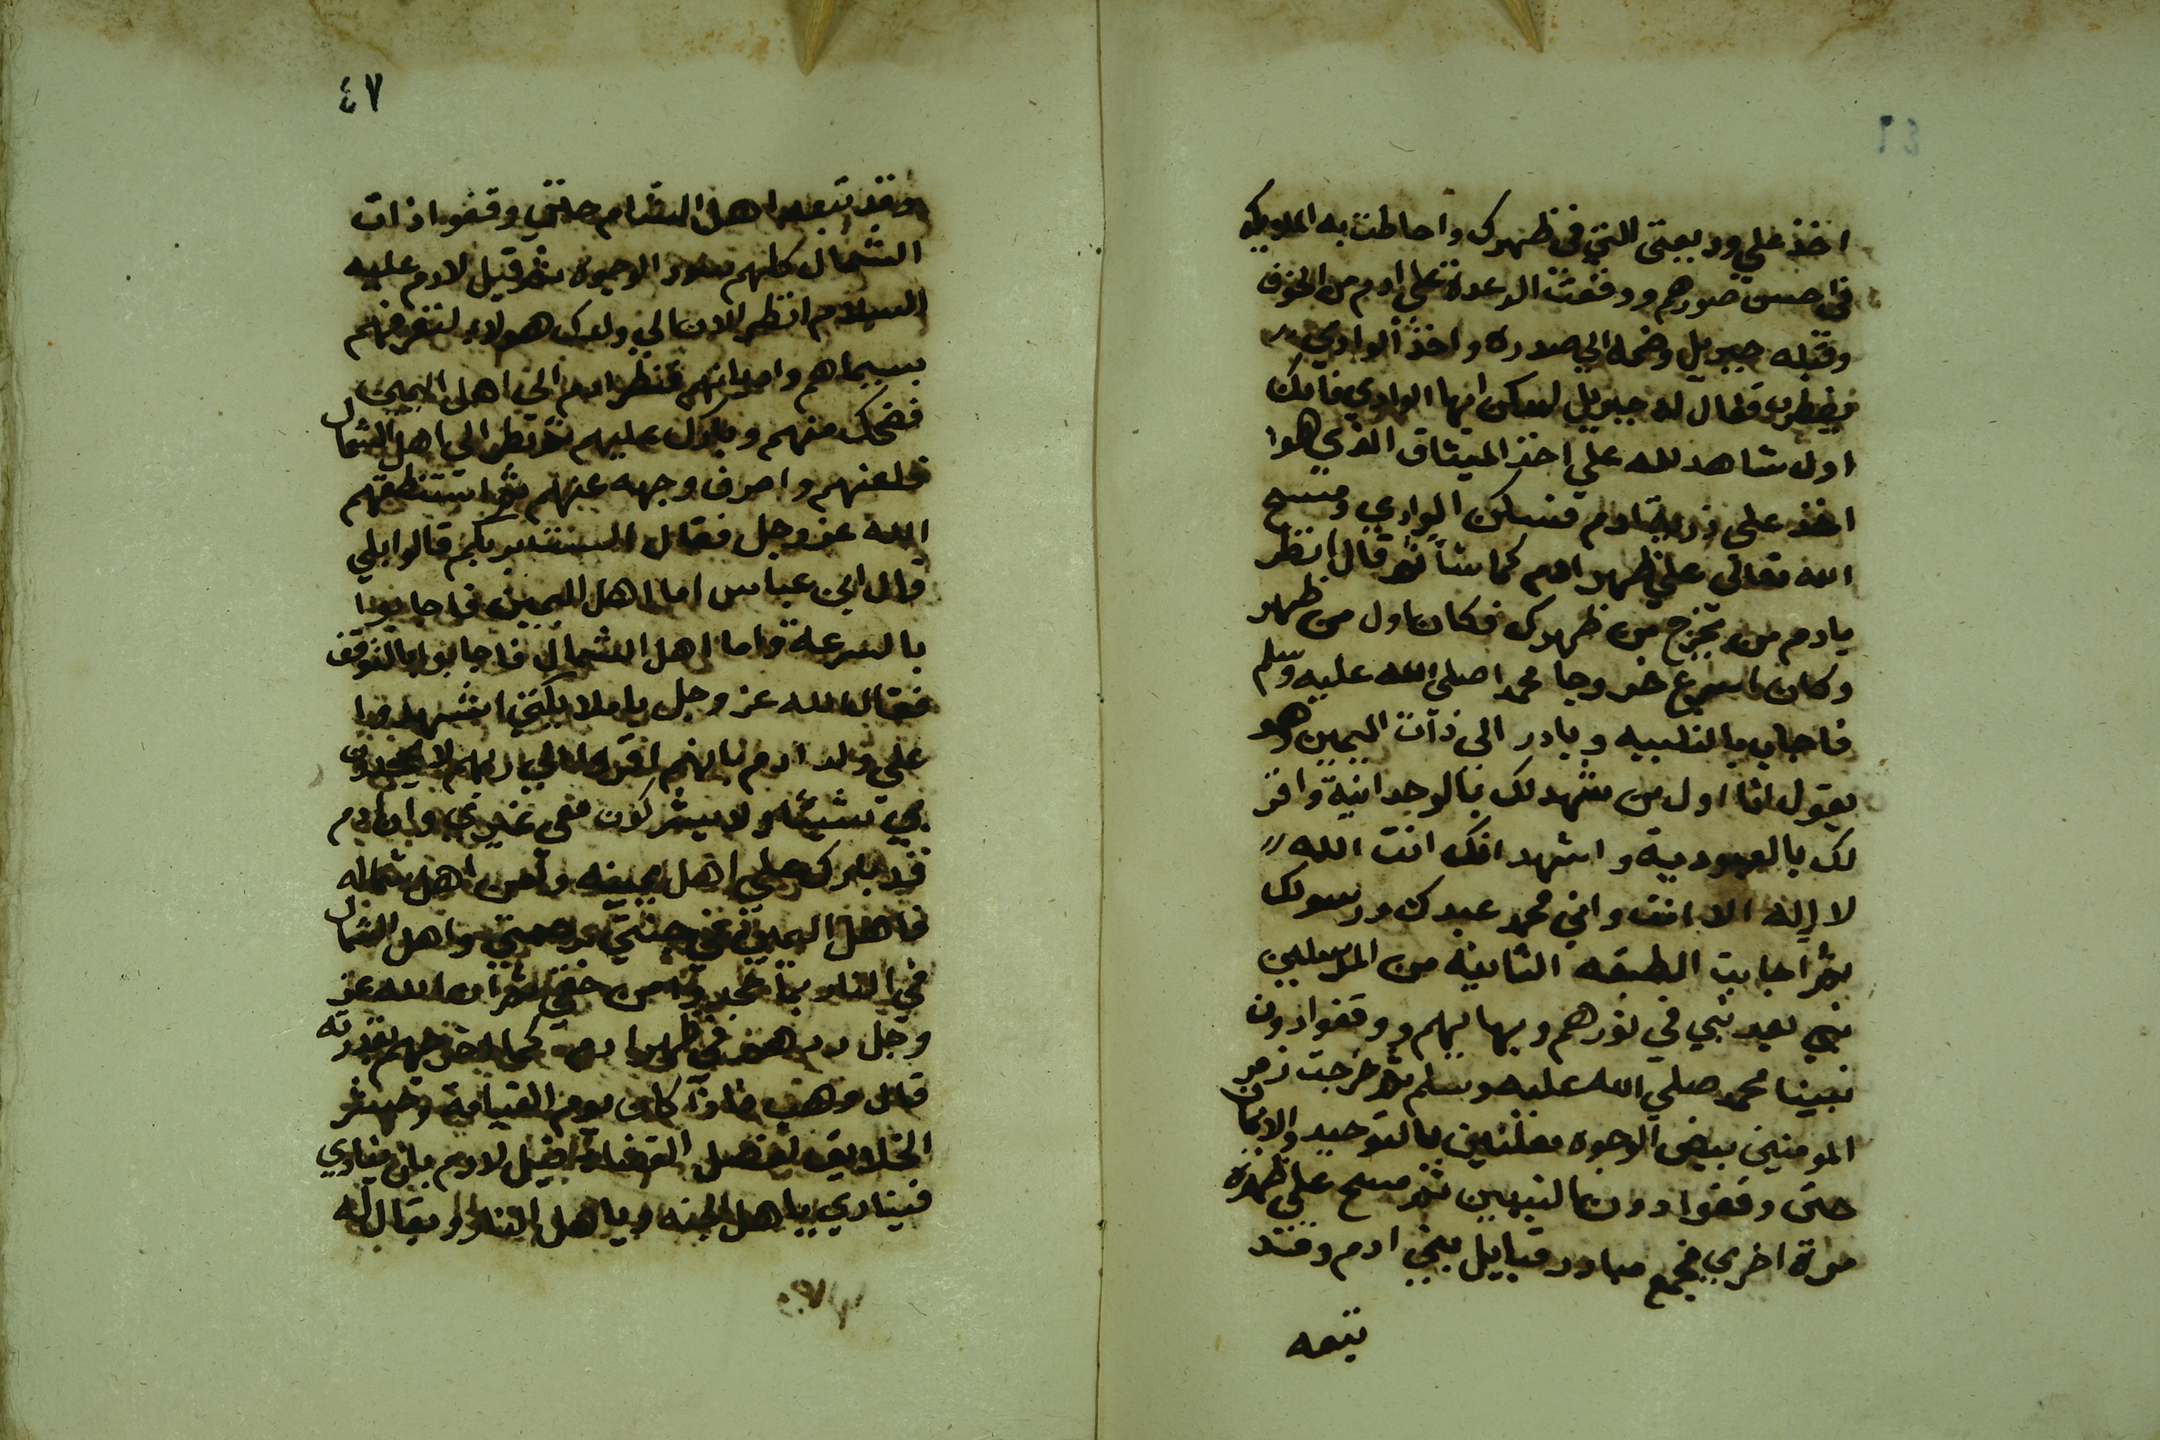 ٤٦
اخذ علي وديعتى التي في ظهرك واحاطت به الملايكه
في احسن صورهم ووقعت الرعدة علي ادم من الخوف
وقبله جبريل وضمه الي صدره واخذ الوادي
يضطرب فقال له جبريل اسكن ايها الوادي فانك
اول شاهد لله علي اخذ الميثاق الذي هوا
اخذ علي ذرية ادم فسكن الوادي ومسح
الله تعالى علي ظهر ادم كما شا ثم قال انظر
يادم من يخرج من ظهرك فكان اول من ظهر
وكان اسرع خروجا محمد اصلي الله عليه وسلم
فاجاب بالتلبيه وبادر الى ذات اليمين وهو
يقول انا اول من شهد لك بالوحدانية واقر
لك بالعبودية واشهد انك انت الله
لا إله الا انت واني محمد عبدك ورسولك
ثم اجابت الطبقه الثانية من المرسلين
نبي بعد نبي في نورهم وبهايهم ووقفوا دون
نبينا محمد صلي الله عليه وسلم ثم خرجت زمر
المومنين بيض الوجوه معلنين بالتوحيد والايمان
حتى وقفوا دون النبيين ثم مسح علي ظهره
مرة اخري فجمع مبادر قبايل بني ادم وقد
تتبعه
٤٧
وقد تبعوا اهل الشام حتي وقفوا ذات
الشمال كلهم سود الوجوه ثم قيل لادم عليه
السلام انظر الان الي ولدك هولاء لتعرفهم
بسيماهم واديانهم فنظر ادم الي اهل اليمين
فضحك منهم وبارك عليهم ثم نظر الي اهل الشمال
فلعنهم واصرف وجهه عنهم ثم استنطقهم
الله عز وجل فقال الست بربكم قالوا بلي
قال ابن عباس اما اهل اليمين فاجابوا
بالسرعة واما اهل الشمال فاجابوا بالتوقف
فقال الله عز وجل يا ملايكتي اشهدوا
علي ولد ادم بانهم اقروا اني ربهم لا يجحدون
بي شيئا ولا يشركون معي غيري وان ادم
قد بارك علي اهل يمينه ولعن اهل شماله
فاهل اليمين في جنتي برحمتي واهل الشمال
في النار بما جحدوا من حقي ثم ان الله عز
وجل ردهم في ظهر ادم كما اخرجهم بقدرته
قال وهب فاذا كان يوم القيامة وحشر
الخلايق لفصل القضا قيل لادم بان ينادي
فينادي يا اهل الجنه ويا اهل النار ويقال له